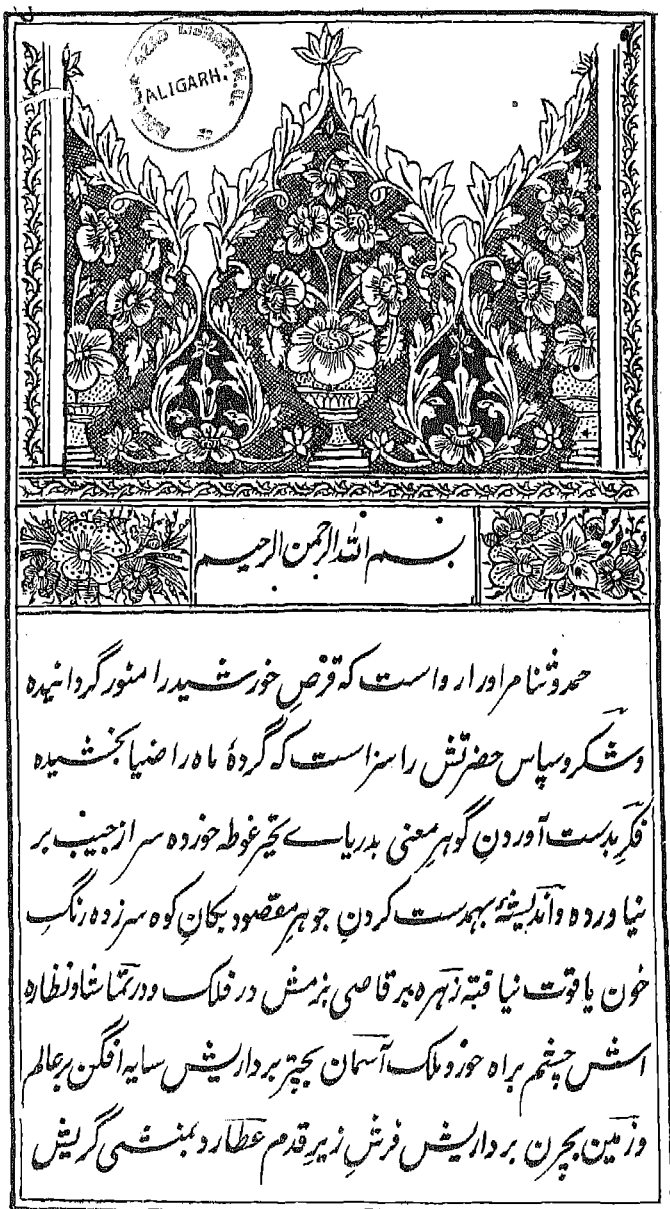 ALIGARH.
بسم الله الرحمن الرحیم
حمد و ثنا مر او را رواست که قرص خورشید را منور گردانیده
و شکر و سپاس حضرتش را سزاست که گردهٔ ماه را ضیا بخشیده
فکر بدست آوردن گوهر معنی بدریاے تحیر غوطه خورده سر از جیب بر
نیاورده و اندیشهٔ بهمدست کردن جوهر مقصود بکان کوه سر زده رنگ
خون یاقوت نیافته زهره برقاصی بزمش در فلک و در تماشا و نظاره
اش چشم براه حور و ملک آسمان بچتر برداریش سایه افگن بر عالم
و زمین بچرن برداریش فرش زیر قدم عطارد بمنشی گریش